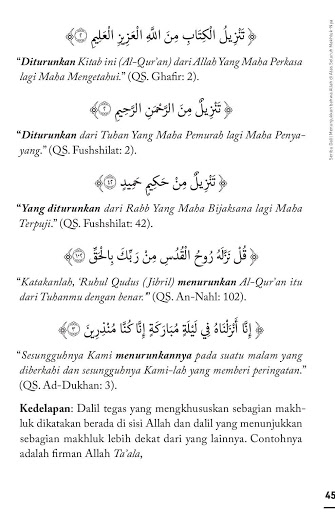 ﴿ تَنْزِيلُ الْكِتَابِ مِنَ اللَّهِ الْعَزِيزِ الْعَلِيمِ ۝٢ ﴾
“Diturunkan Kitab ini (Al-Qur’an) dari Allah Yang Maha Perkasa
lagi Maha Mengetahui.” (QS. Ghafir: 2).
﴿ تَنْزِيلٌ مِنَ الرَّحْمَنِ الرَّحِيمِ ۝٢ ﴾
“Diturunkan dari Tuhan Yang Maha Pemurah lagi Maha Penya-
yang.” (QS. Fushshilat: 2).
﴿ تَنْزِيلٌ مِنْ حَكِيمٍ حَمِيدٍ ۝٤٢ ﴾
“Yang diturunkan dari Rabb Yang Maha Bijaksana lagi Maha
Terpuji.” (QS. Fushshilat: 42).
﴿ قُلْ نَزَّلَهُ رُوحُ الْقُدُسِ مِنْ رَبِّكَ بِالْحَقِّ ۝١٠٢ ﴾
“Katakanlah, ‘Ruhul Qudus (Jibril) menurunkan Al-Qur’an itu
dari Tuhanmu dengan benar.’” (QS. An-Nahl: 102).
﴿ إِنَّا أَنْزَلْنَاهُ فِي لَيْلَةٍ مُبَارَكَةٍ إِنَّا كُنَّا مُنْذِرِينَ ۝٣ ﴾
“Sesungguhnya Kami menurunkannya pada suatu malam yang
diberkahi dan sesungguhnya Kami-lah yang memberi peringatan.”
(QS. Ad-Dukhan: 3).
Kedelapan: Dalil tegas yang mengkhususkan sebagian makh-
luk dikatakan berada di sisi Allah dan dalil yang menunjukkan
sebagian makhluk lebih dekat dari yang lainnya. Contohnya
adalah firman Allah Ta’ala,
45